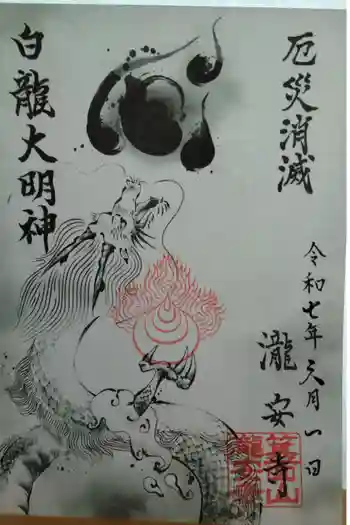 厄災消滅
令和七年六月一日
瀧安寺
白龍大明神
箕面山